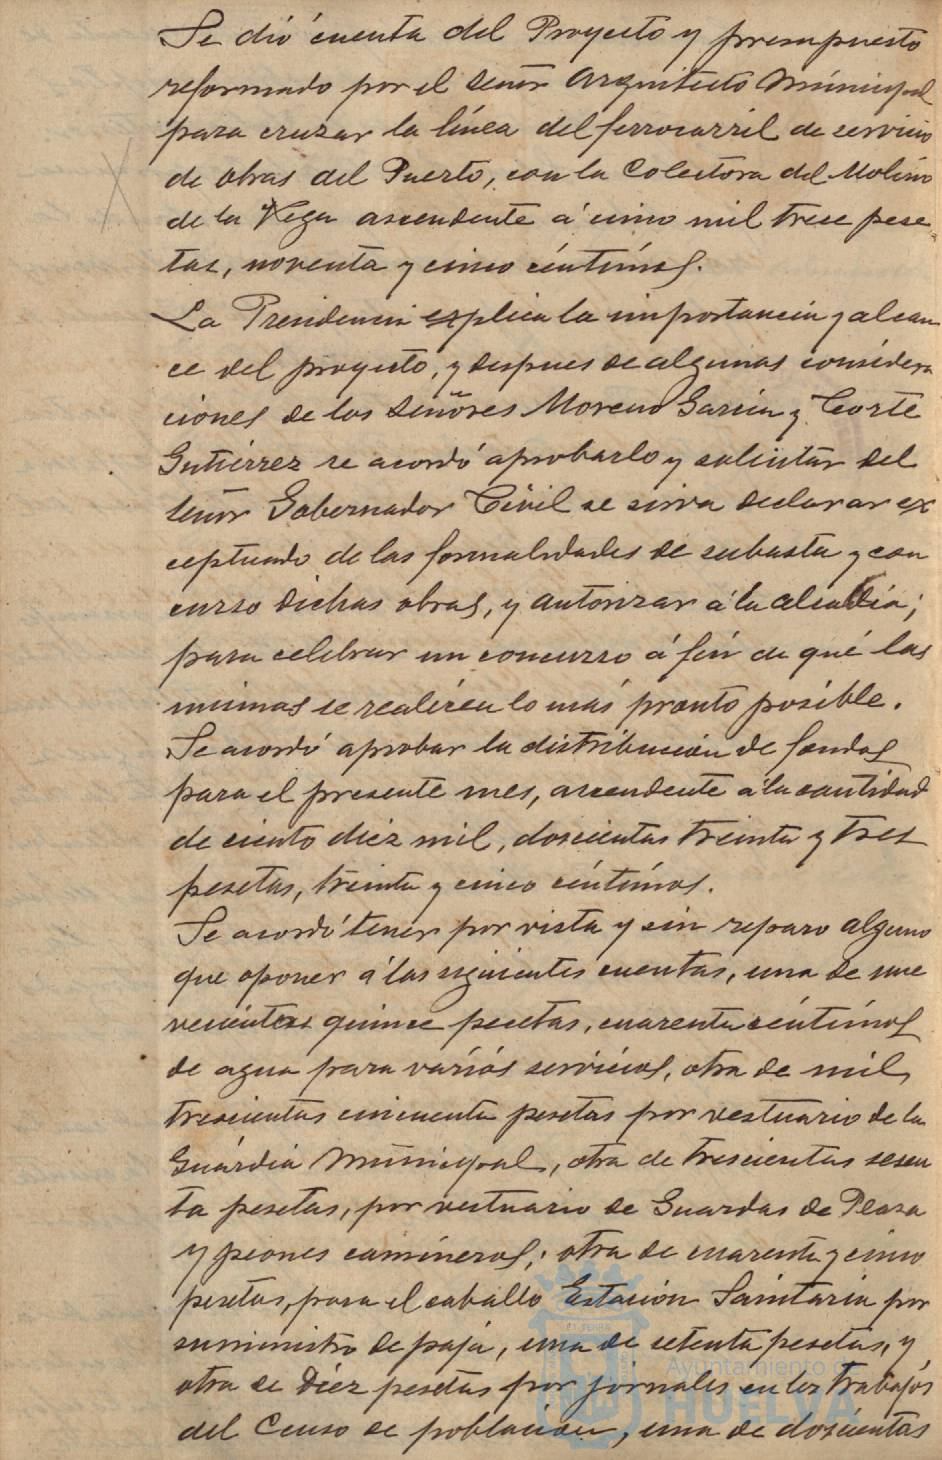 Se dió cuenta del Proyecto y presupuesto
reformado por el Señor Arquitecto Múnicipal
para cruzar la línea del ferrocarril de servicio
de obras del Puerto, con la Colectora del Molino
de la Vega ascendente á cinco mil trece pese-
tas, noventa y cinco céntimos.
La Presidencia explica la importancia y alcan
ce del proyecto, y despues de algunas considera
ciones de los Señores Moreno Garcia y Corte
Gutiérrez se acordó aprobarlo y solicitar del
Señor Gobernador Civil se sirva declarar ex
ceptuado de las formalidades de subasta y con
curso dichas obras, y autorizar á la alcaldía;
para celebrar un concurso á fin de qué las
mismas se realicen lo más pronto posible.
Se acordó aprobar la distribución de fondos
para el presente mes, ascendente á la cantidad
de ciento diez mil, doscientas treinta y tres
pesetas, treinta y cinco céntimos.
Se acordó tener por vista y sin reparo alguno
que oponer á las siguientes cuentas, una de nue
vecientas quince pesetas, cuarenta céntimos
de agua para varios servicios, otra de mil
trescientas cincuenta pesetas por vestuario de la
Guardia Múnicipal, otra de trescientas sesen
ta pesetas, por vestuario de Guardas de Plaza
y peones camineros; otra de cuarenta y cinco
pesetas, para el caballo Estación Sanitaria por
suministro de paja, una de setenta pesetas, y
otra de Diez pesetas por jornales en los trabajos
del Censo de población, una de doscientas
Ayuntamiento de
HUELVA